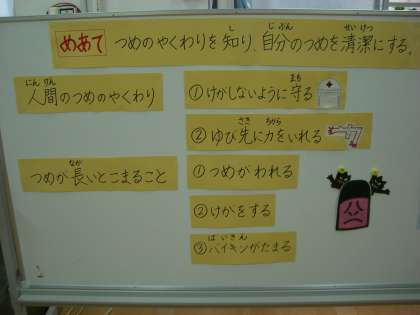 めあて つめのやくわりを知り、自分のつめを清潔にする。
人間のつめのやくわり
①けがしないように守る
②ゆび先に力をいれる
つめが長いとこまること
①つめがわれる
②けがをする
③バイキンがたまる